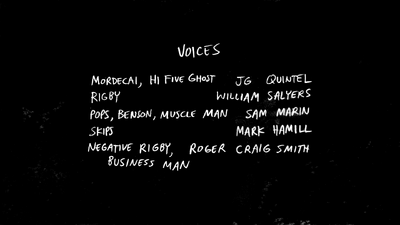 VOICES
MORDECAI, HI FIVE GHOST JG QUINTEL
RIGBY WILLIAM SALYERS
POPS, BENSON, MUSCLE MAN SAM MARIN
SKIPS MARK HAMILL
NEGATIVE RIGBY, ROGER CRAIG SMITH
BUSINESS MAN